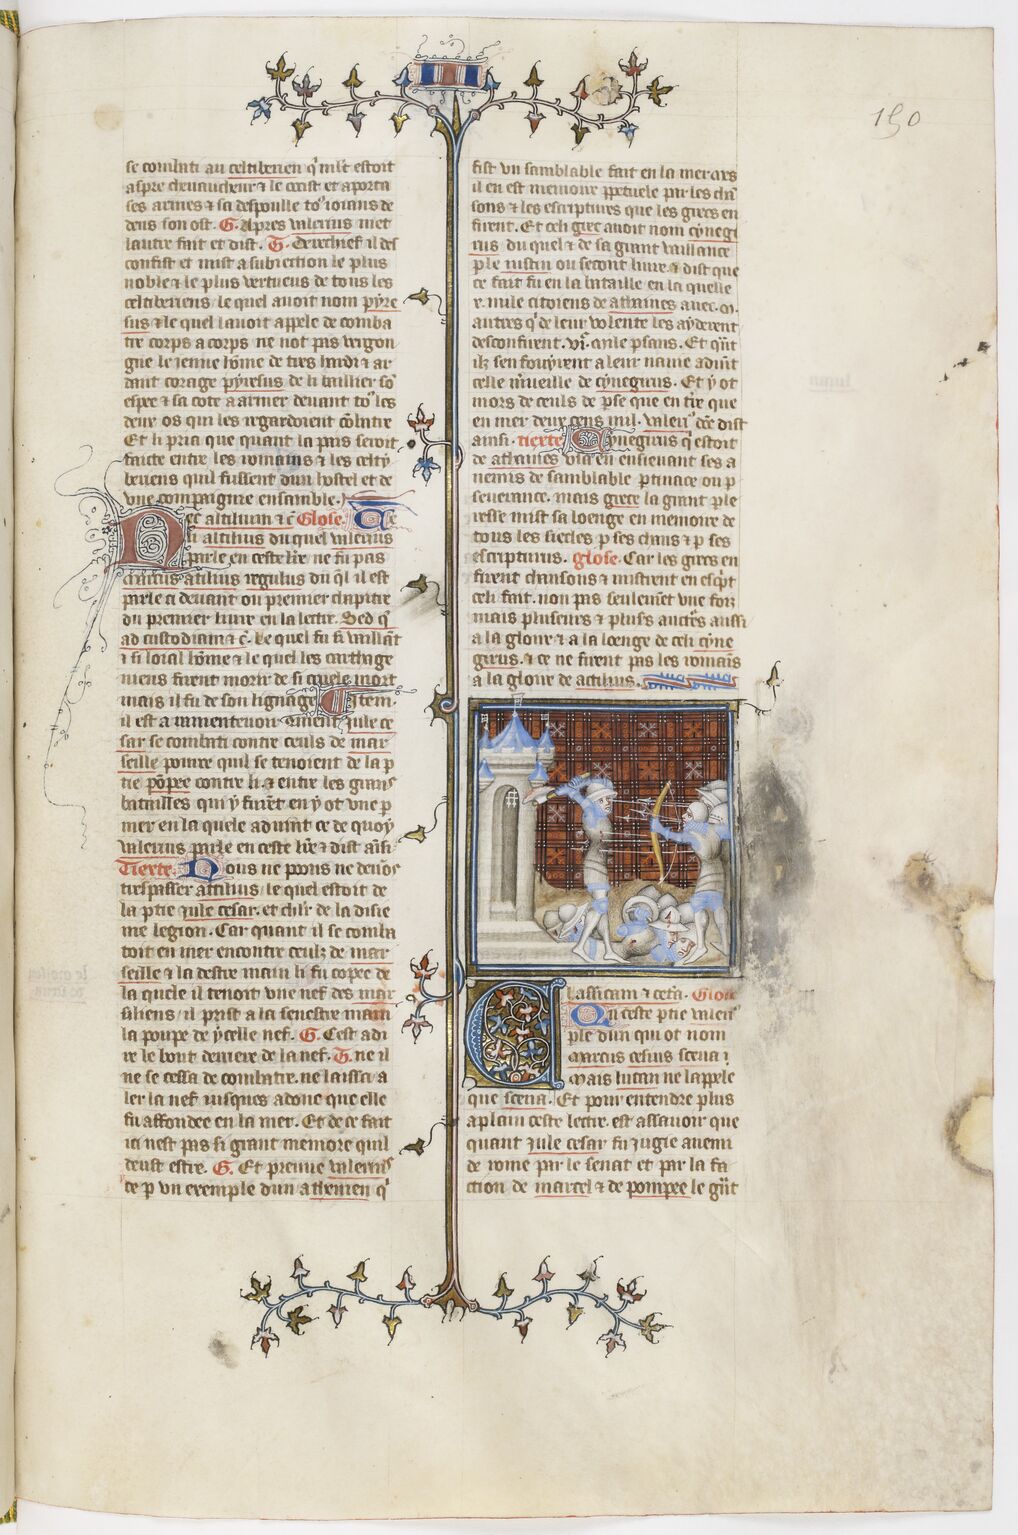 150
se combati au celtiberien q' mlt estoit
aspre cheuaucheur ⁊ le occist et aporta
ses armes ⁊ sa despoulle to' ioians de
dens son ost. G. Apres valerius met
lautre fait et dist. T. Derechief il des
confist et mist a subiection le plus
noble ⁊ le plus vertueus de tous les
celtiberiens le quel auoit nom pyre
sus ⁊ le quel lauoit appele de comba
tre corps a corps ne not pas vergon
gne le ienne hōme de tres hardi ⁊ ar
dant corage pyresus de li baillier sō
espee ⁊ sa cote a armer deuant to' les
deux os qui les regardoient cōbatre
Et li pria que quant la pais seroit
faicte entre les romains ⁊ les celty
beriens quil fussent dun hostel et de
vne compaignie ensamble.
Nec altilium ⁊ c̄ Glose. Ce
si altilius du quel valerius
parle en ceste lr̄e ne fu pas
marcus atilius regulus du q̄l il est
parle ci deuant ou premier chapitre
du premier liure en la lectre. Sed q'
ad custodiam ⁊ c̄. Le quel fu si vaillāt
⁊ si loial hōme ⁊ le quel les carthage
niens firent morir de si cruele mort
mais il fu de son lignage Item.
il est a ramenteuoir cōment Jule ce
sar se combati contre ceuls de mar
seille pource quil se tenoient de la p
tie pōpee contre li. ⁊ entre les grans
batailles qui y furēt en y ot vne p
mer en la quele aduint ce de quoy
valerius parle en ceste lr̄e ⁊ dist aīsi.
Tiexte. Nous ne pons ne deuōs
trespasser attilius le quel estoit de
la ptie Jule cesar. et chlr de la disie
me legion. Car quant il se comba
toit en mer encontre ceulz de mar
seille ⁊ la destre main li fu copee de
la quele il tenoit vne nef des mar
siliens il prist a la senestre main
la poupe de ycelle nef. G. Cest adi
re le bout derriere de la nef. T. ne il
ne se cessa de combatre. ne laissa a
ler la nef iusques adonc que elle
fu affondee en la mer. Et de ce fait
ici nest pas si grant memoire quil
deust estre. G. Et preuue valerius
ce p vn exemple dun athenien q'
fist vn samblable fait en la mer dōt
il en est memoire ppetuele par les chā
sons ⁊ les escriptures que les grecs en
firent. Et celi grec auoit nom cynegi
rus. du quel ⁊ de sa grant vaillance
ple iustin ou second liure. ⁊ dist que
ce fait fu en la bataille en la quelle
x. mile citoiens de athaines auec. m.
autres q' de leur volente les ayderent
desconfirent. vi.c mile psans. Et qn̄t
ilz sen fouyrent a leur nauie aduīt
celle m̄ueille de cynegirus. Et y ot
mors de ceuls de pse que en t̄re que
en mer deux cens mil. Valeri' dōc dist
ainsi. Tiexte Cynegirus q' estoit
de athaines vsa en ensieuant ses a
nemis de samblable ptinace ou p
seuerance. mais grece la grant ple
resse mist sa loenge en memoire de
tous les siecles p ses chans ⁊ p ses
escriptures. glose. Car les grecs en
firent chansons ⁊ mistrent en esc̄pt
celi fait. non pas seulemēt vne fois
mais pluseurs ⁊ plus's auct̄es aussi
a la gloire ⁊ a la loenge de celi cyne
girus. ⁊ ce ne firent pas les romaīs
a la gloire de actilius.
Classicam ⁊ cetā. Glose
En ceste ptie valeri'
ple dun qui ot nom
Marcus cesius sceua:
Mais lucan ne lappele
que sceua. Et pour entendre plus
a plain ceste lectre. est assauoir que
quant Jule cesar fu iugie anemi
de rome par le senat et par la fa
ction de marcel ⁊ de pompee le grāt